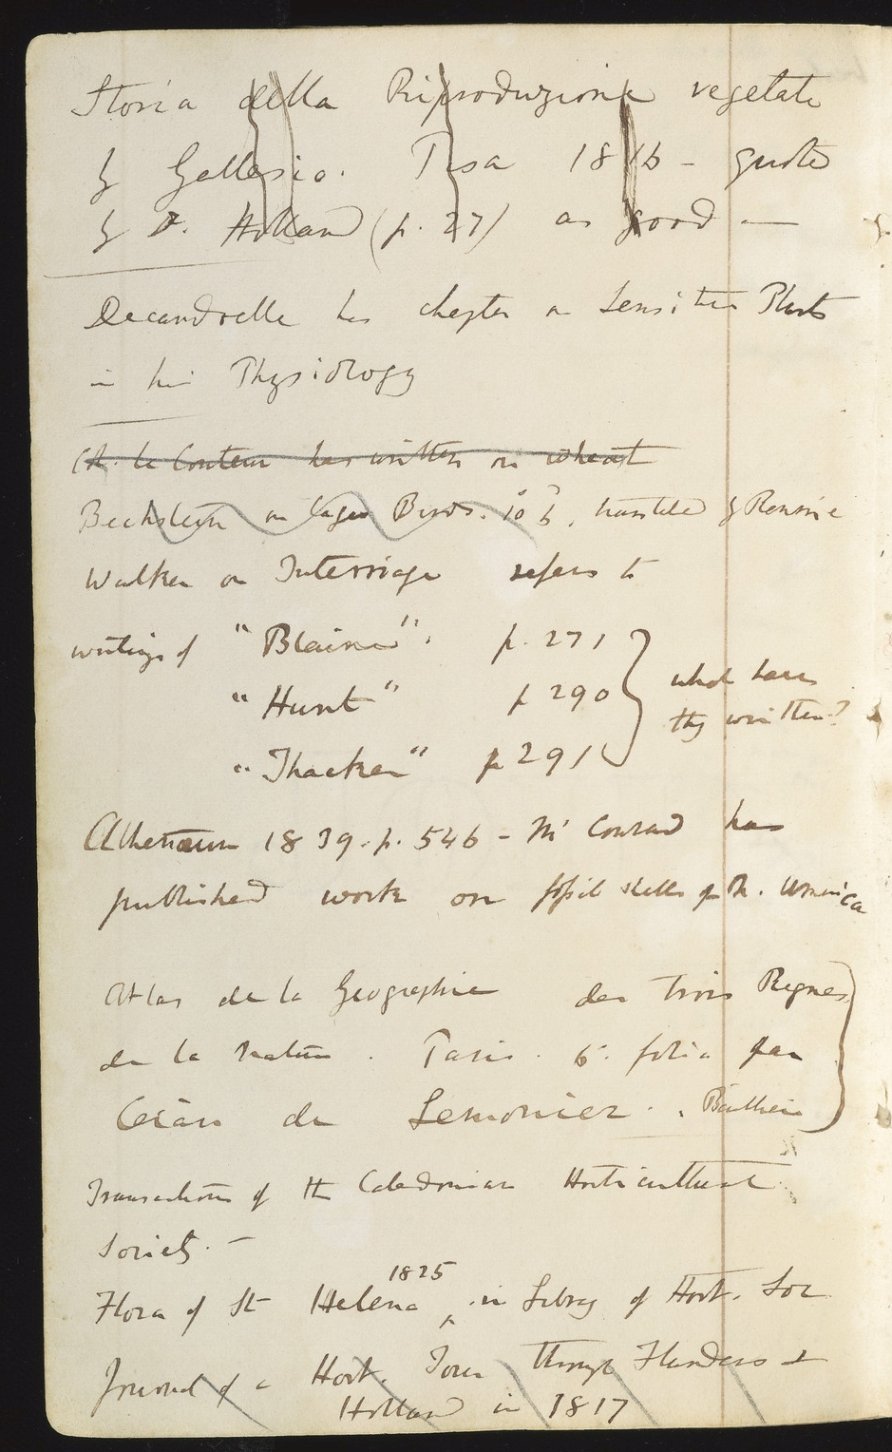 Storia della Riproduzione vegetale
by Gallesio. Pisa 1816 - quoted
by Dr. Holland (p. 27) as good —
Decandoelle has chapter on Sensitive Plants
in his Physiology
Col. le Couteur has written on wheat
Bechstein on Cage Birds. 10s 6, translated by Rennie
Walker on Intermarriage refers to
writings of "Blaine". p. 271
"Hunt" p 290 } what have
"Thacker" p 291 they written?
Athenæum 1839. p. 546 - Mr Conrad has
published work on fossil shells of N. America
Atlas de la Geographie des Trois Regnes
de la Nature. Paris. folio par
de Lemonier.
Transactions of the Caledonian Horticultural
Society. —
Flora of St Helena 1825 in Library of Hort. Soc
Journal of a Hort. Tour through Flanders &
Holland in 1817